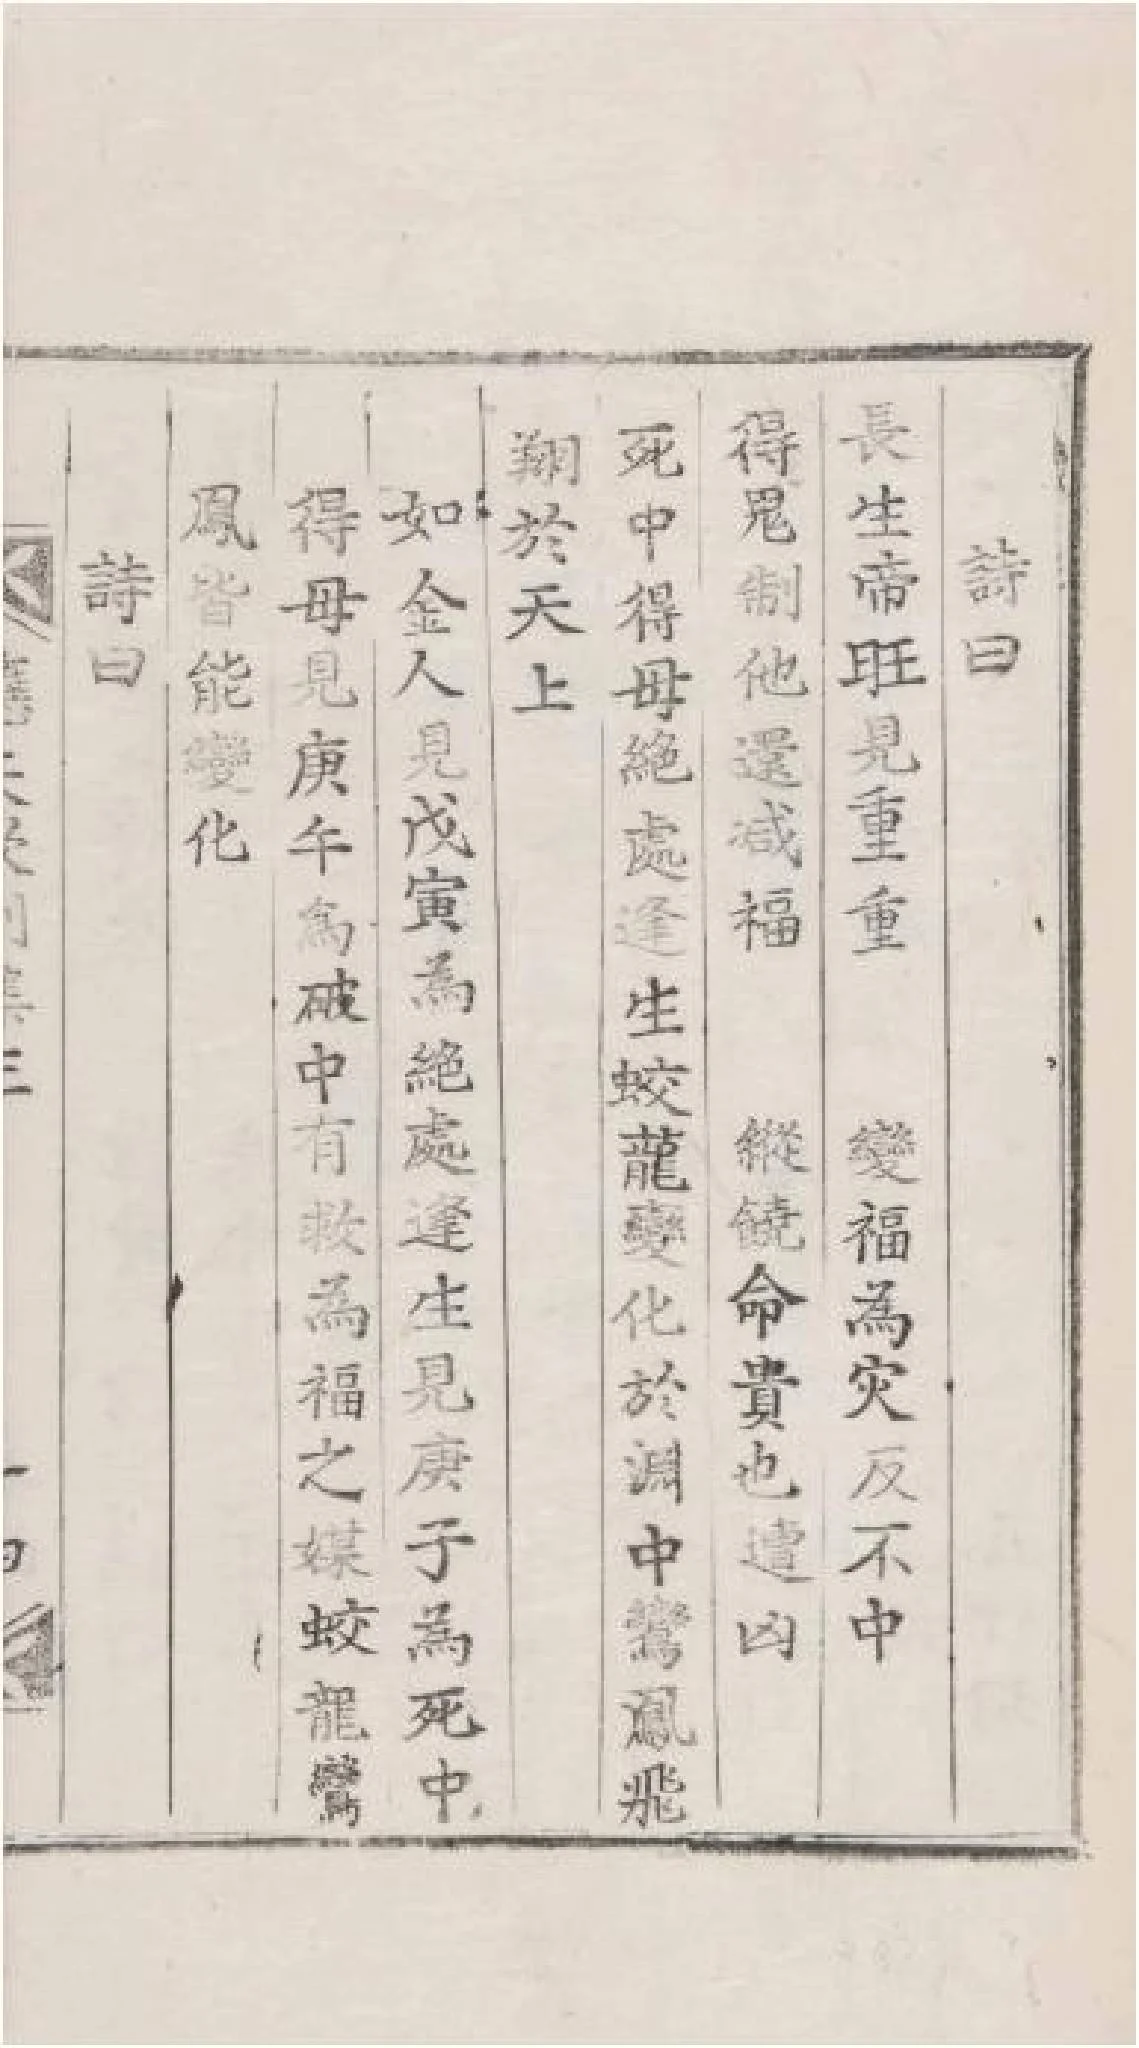 詩曰
長生帝旺見重重　變福為災反不中
得鬼制他還減福　縱饒命貴也遭凶
死中得母絕處逢生蛟龍變化於淵中鸞鳳飛
翔於天上
如金人見戊寅為絕處逢生見庚子為死中
得母見庚午為破中有救為福之媒蛟龍鸞
鳳皆能變化
詩曰